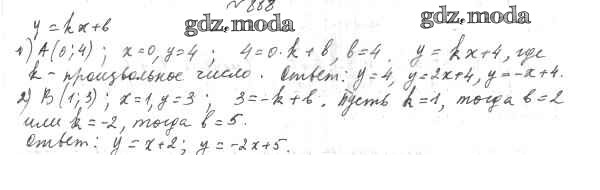 № 888
y = kx + b
gdz.moda gdz.moda
1) A(0; 4) ; x=0, y=4 ; 4=0·k+b, b=4. y = kx+4, где
k - произвольное число. Ответ: y=4, y=2x+4, y=-x+4.
2) B(1; 3) ; x=1, y=3 ; 3=-k+b. Пусть k=1, тогда b=2
или k=-2, тогда b=5.
Ответ: y = x+2; y = -2x+5.